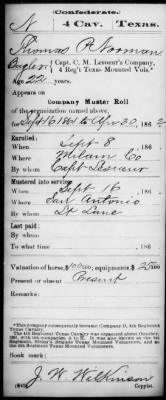 Confederate.
N 4 Cav. Texas.
Thomas P. Norman
Bugler, Capt. C. M. Lesueur's Company,
4 Reg't Texas Mounted Vols.*
Age 22 years.
Appears on
Company Muster Roll
of the organization named above,
for Sept 16 1861 to Apr 30, 1862
Enrolled:
When Sept 8, 186
Where Milam Co
By whom Capt Lesueur
Mustered into service:
When Sept 16, 186
Where San Antonio
By whom Lt Lane
Last paid:
By whom
To what time 186
Valuation of horse, $100/00; equipments, $25/00
Present or absent Present
Remarks:
*This company subsequently became Company D, 4th Regiment Texas Cavalry.
The 4th Regiment Texas Cavalry was organized about October, 1861, with ten companies, A to K. It was also known as the 1st Regiment, Sibley's Brigade Texas Mounted Volunteers, and as the 4th Regiment Texas Mounted Volunteers.
Book mark:
J. W. Wilkinson
(642) Copyist.